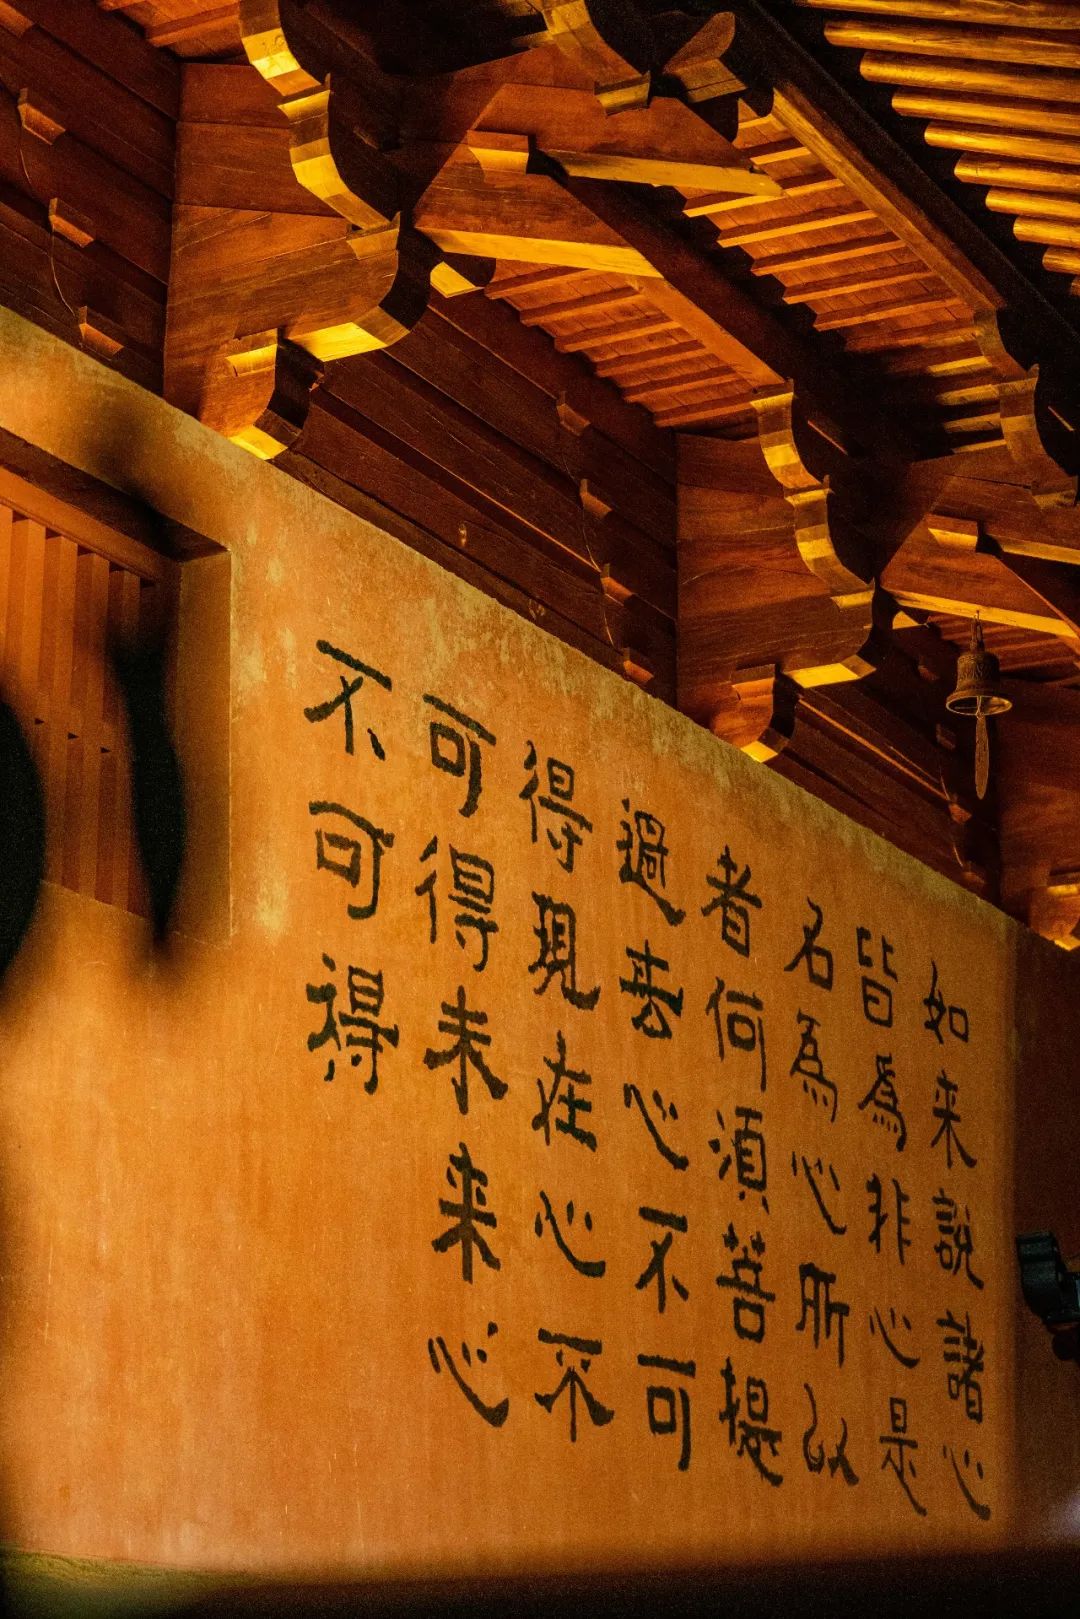 如来説諸心
皆為非心是
名為心所以
者何須菩提
過去心不可
得現在心不
可得未来心
不可得